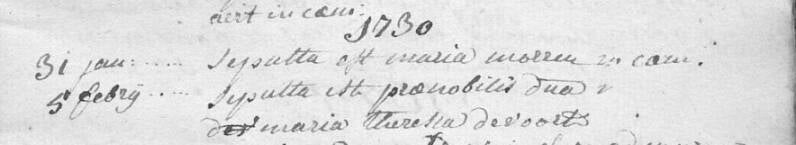 aert in cœm:
1730
31 jan: ..... Sepulta est maria morren in cœm:
5 febrij ..... Sepulta est prænobilis dna
maria theresia de voort